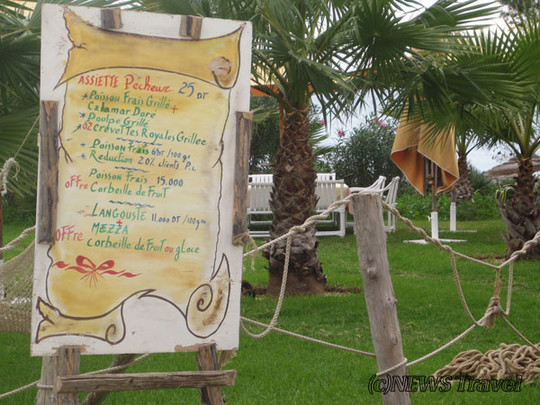 ASSIETTE Pêcheur 25 DT
* Poisson Frais Grillé
+
Calamar Doré
* Poulpe Grillé
* 02 Crevettes Royales Grillée
* Poisson Frais 65dt/100g
* Réduction 20% clients P.L
Poisson Frais 15.000
OFFRE
Corbeille de Fruit
LANGOUSTE 11.000 DT/100gm
+
OFFRE MEZZA
Corbeille de Fruit ou glace
(C)NEWS Travel